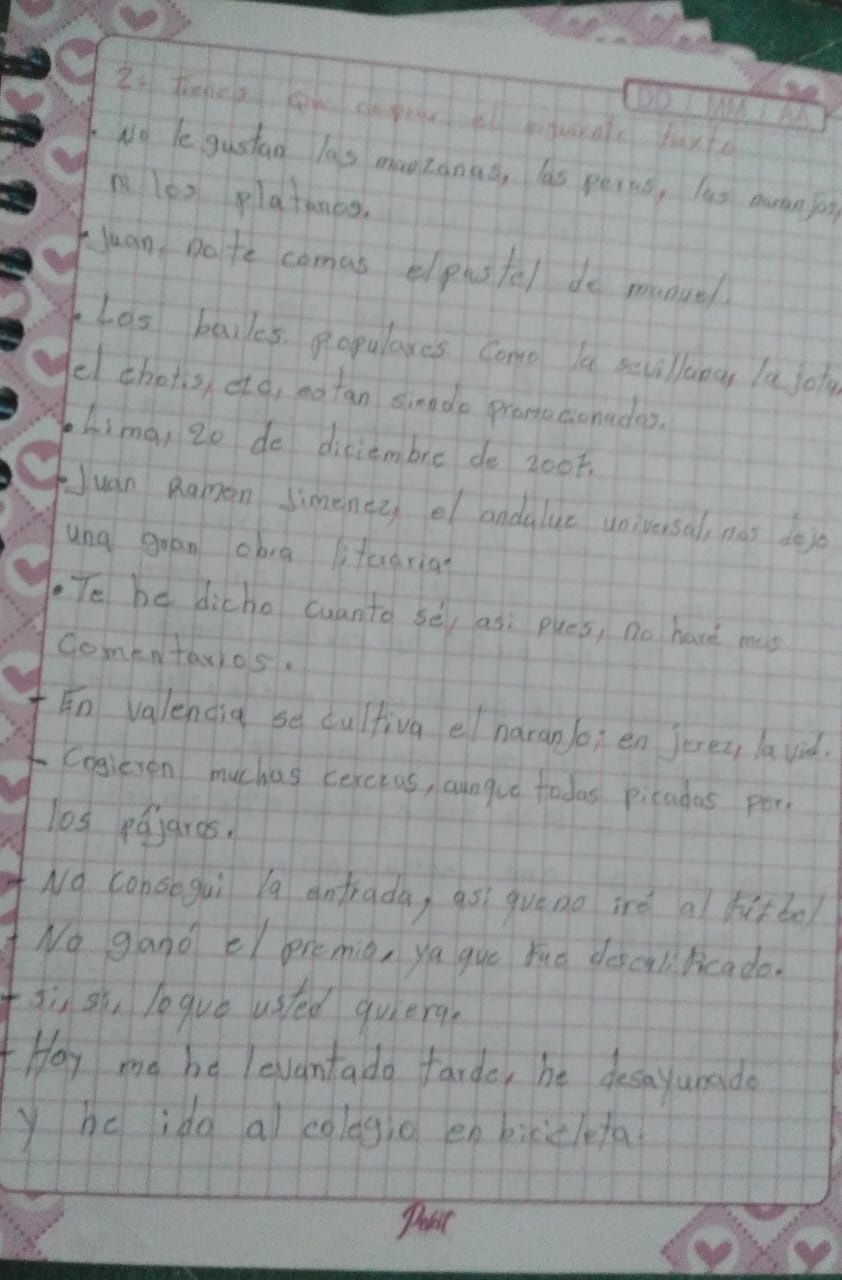 DD / MM / AA
2: Tienes que copiar el siguiente texto
· No le gustan las manzanas, las peras, las naranjas,
ni los platanos.
· Juan, no te comas el pastel de manuel.
· Los bailes populares como la sevillana, la jota,
el chotis, etc, estan siendo promocionados.
· Lima, 20 de diciembre de 2007.
· Juan Ramon Jimenez, el andaluz universal, nos dejo
una gran obra literaria.
· Te he dicho cuanto sé, asi pues, no haré mas
comentarios.
- En valencia se cultiva el naranjo; en jerez, la vid.
- Cogieron muchas cerezas, aunque todas picadas por.
los pájaros.
- No consegui la entrada, asi que no iré al fútbol
- No ganó el premio, ya que fue descalificado.
- si, si, lo que usted quiera.
- Hoy me he levantado tarde, he desayunado
y he ido al colegio en bicicleta.